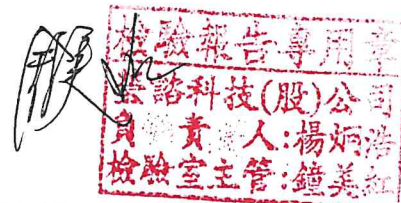 檢驗報告專用章
諮科技(股)公司
負責人:楊炳浩
檢驗室主管:鐘美紅